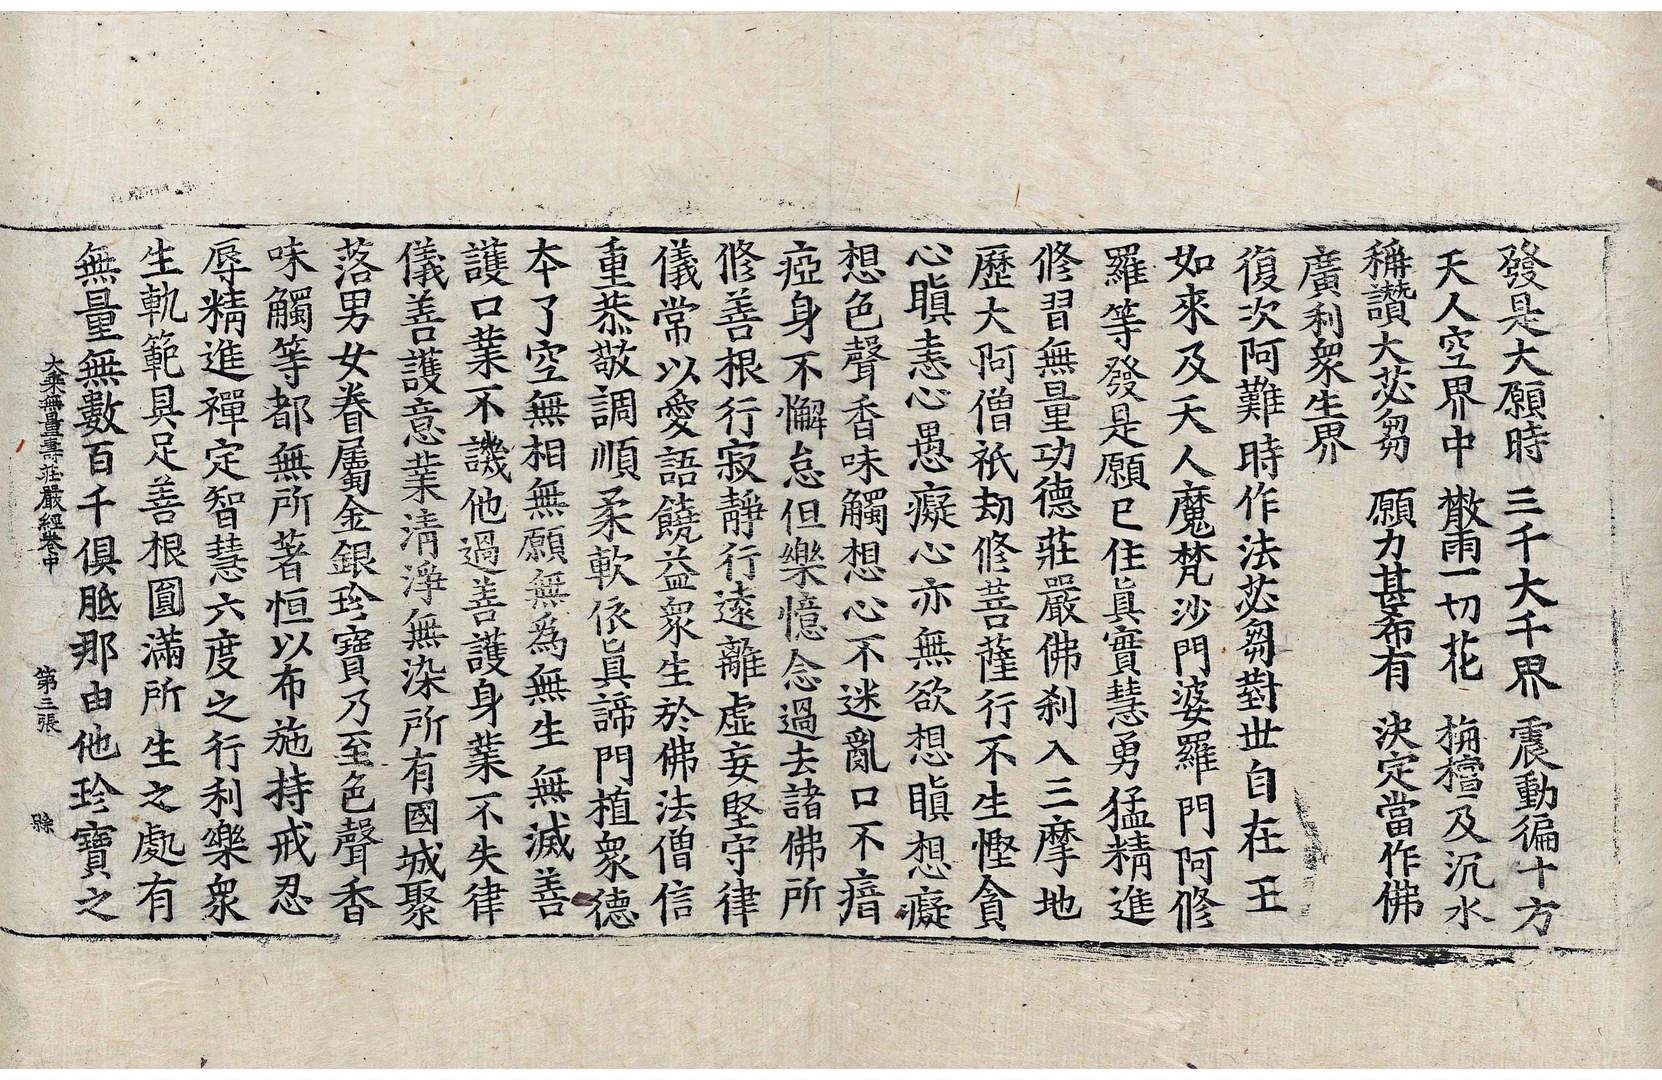 發是大願時　三千大千界　震動徧十方
天人空界中　散雨一切花　栴檀及沉水
稱讚大苾芻　願力甚希有　決定當作佛
廣利衆生界
復次阿難時作法苾芻對世自在王
如來及天人魔梵沙門婆羅門阿修
羅等發是願已住眞實慧勇猛精進
修習無量功德莊嚴佛刹入三摩地
歷大阿僧祇劫修菩薩行不生慳貪
心瞋恚心愚癡心亦無欲想瞋想癡
想色聲香味觸想心不迷亂口不瘖
瘂身不懈怠但樂憶念過去諸佛所
修善根行寂靜行遠離虛妄堅守律
儀常以愛語饒益衆生於佛法僧信
重恭敬調順柔軟依眞諦門植衆德
本了空無相無願無爲無生無滅善
護口業不譏他過善護身業不失律
儀善護意業淸淨無染所有國城聚
落男女眷屬金銀珍寶乃至色聲香
味觸等都無所著恒以布施持戒忍
辱精進禪定智慧六度之行利樂衆
生軌範具足善根圓滿所生之處有
無量無數百千俱胝那由他珍寶之
大乘無量壽莊嚴經卷中　第三張